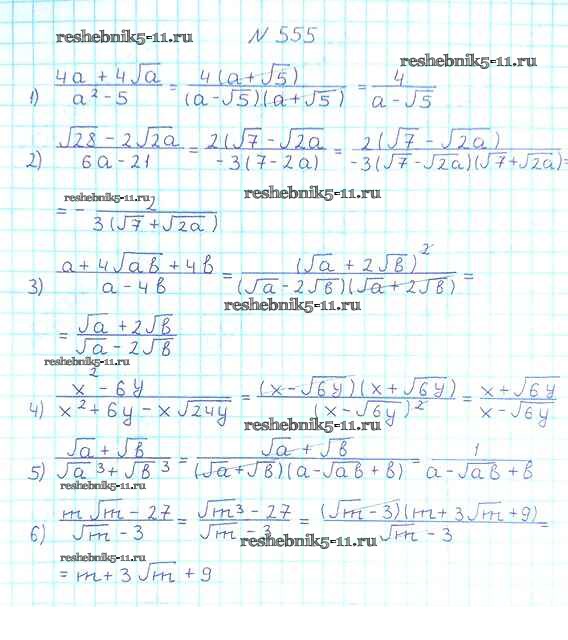 reshebnik5-11.ru
N 555
reshebnik5-11.ru
1) (4a + 4√a)/(a² - 5) = (4(a + √5))/((a - √5)(a + √5)) = 4/(a - √5)
2) (√28 - 2√2a)/(6a - 21) = (2(√7 - √2a)/(-3(7 - 2a)) = (2(√7 - √2a))/(-3(√7 - √2a)(√7 + √2a)) =
reshebnik5-11.ru
reshebnik5-11.ru
= - 2/(3(√7 + √2a))
3) (a + 4√ab + 4b)/(a - 4b) = (√a + 2√b)²/((√a - 2√b)(√a + 2√b)) =
reshebnik5-11.ru
= (√a + 2√b)/(√a - 2√b)
reshebnik5-11.ru
4) (x² - 6y)/(x² + 6y - x√24y) = ((x - √6y)(x + √6y))/(x - √6y)² = (x + √6y)/(x - √6y)
reshebnik5-11.ru
5) (√a + √b)/(√a³ + √b³) = (√a + √b)/((√a + √b)(a - √ab + b)) = 1/(a - √ab + b)
reshebnik5-11.ru
6) (m√m - 27)/(√m - 3) = (√m³ - 27)/(√m - 3) = ((√m - 3)(m + 3√m + 9))/(√m - 3) =
reshebnik5-11.ru
reshebnik5-11.ru
= m + 3√m + 9